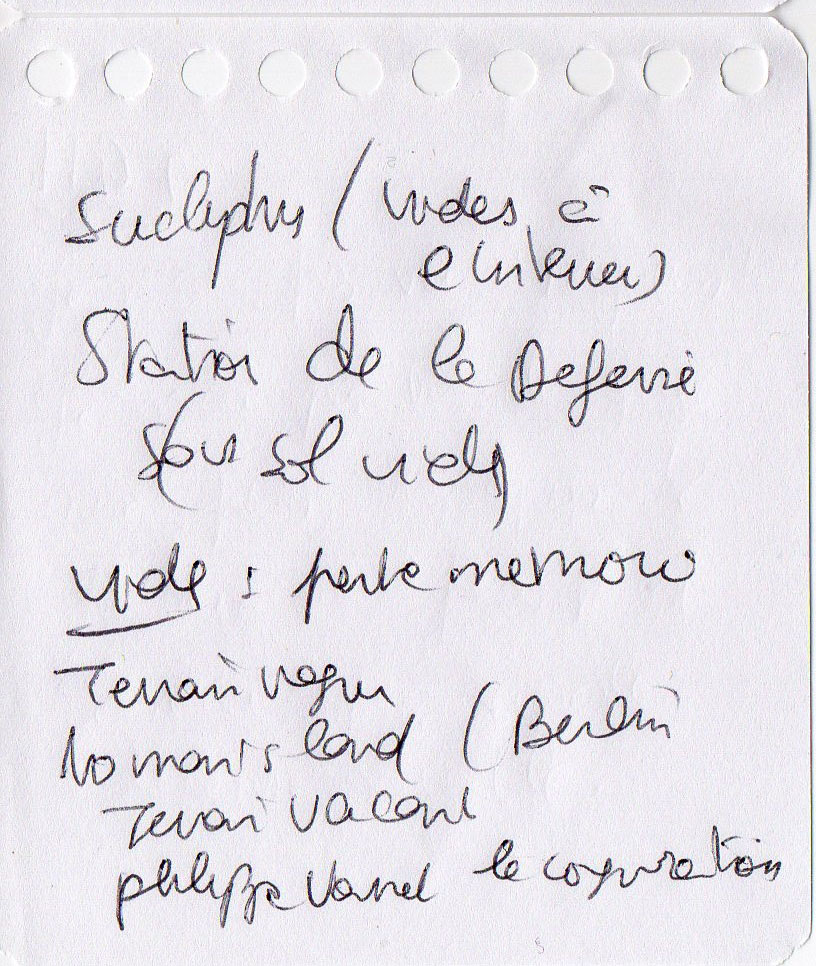 (vides à
Station de la Défense
sous sol vides)
vides : perte memoire
Terrain vague
No man's land (Berlin
Terrain vacant
philippe Vasset la conjuration